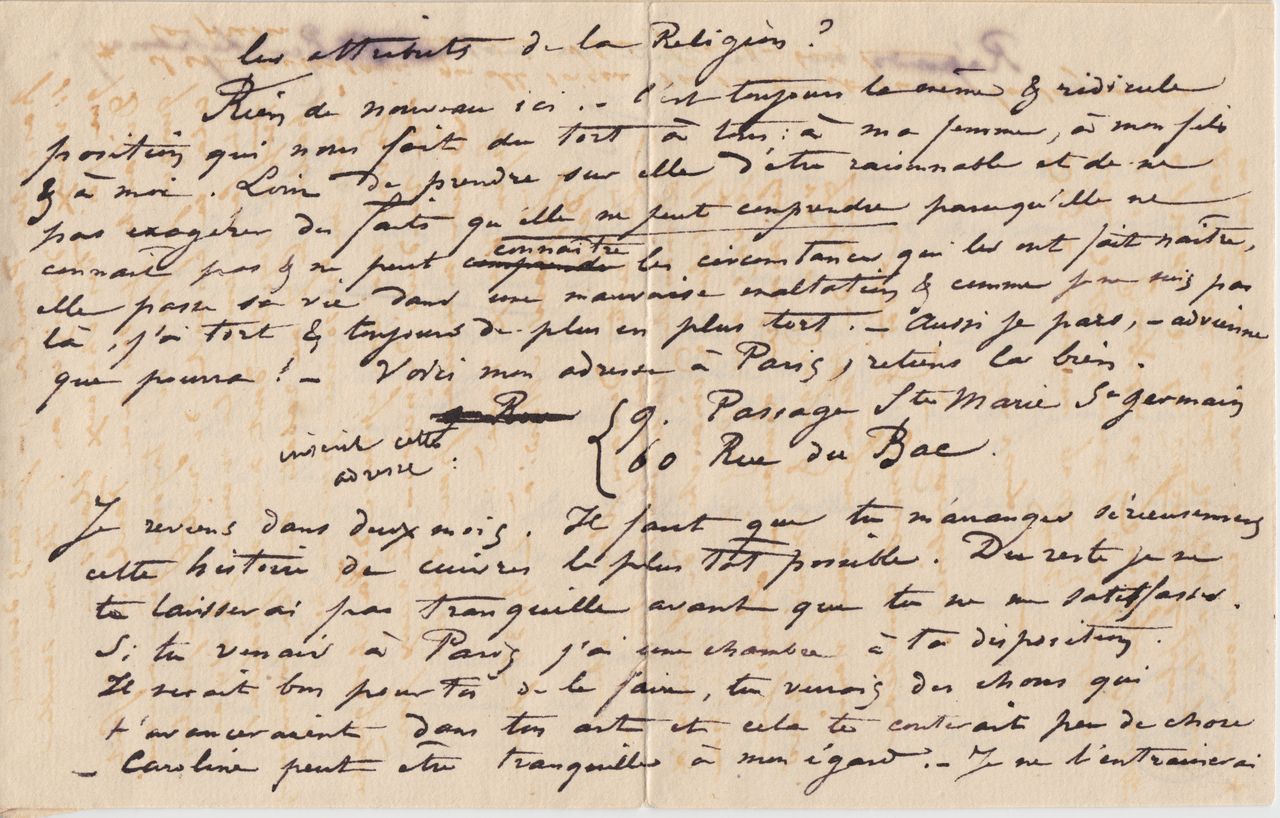 les attributs de la Religion ?
Rien de nouveau ici. – C'est toujours la même & ridicule
position qui nous fait du tort à tous : à ma femme, à mon fils
& à moi. Loin de prendre sur elle d'être raisonnable et de ne
pas exagérer des faits qu'elle ne peut comprendre parcequ'elle ne
connait pas & ne peut comprendre connaître les circonstances qui les ont fait naître,
elle passe sa vie dans une mauvaise exaltation & comme je ne suis pas
là, j'ai tort & toujours de plus en plus tort. – Aussi je pars, – advienne
que pourra ! – Voici mon adresse à Paris, retiens la bien.
Rue
{ 9. Passage Ste Marie St germain
inscrit cette
adresse :
60 Rue du Bac.
Je reviens dans deux mois. Il faut que tu m'arranges sérieusement
cette histoire de cuivres le plus tôt possible. Du reste je ne
te laisserai pas tranquille avant que tu ne me satisfasses.
Si tu venais à Paris j'ai une chambre à ta disposition.
Il serait bon pour toi de le faire, tu verrais des choses qui
t'avanceraient dans ton art et cela te couterait peu de chose
– Caroline peut être tranquille à mon égard. – Je ne t'entrainerai